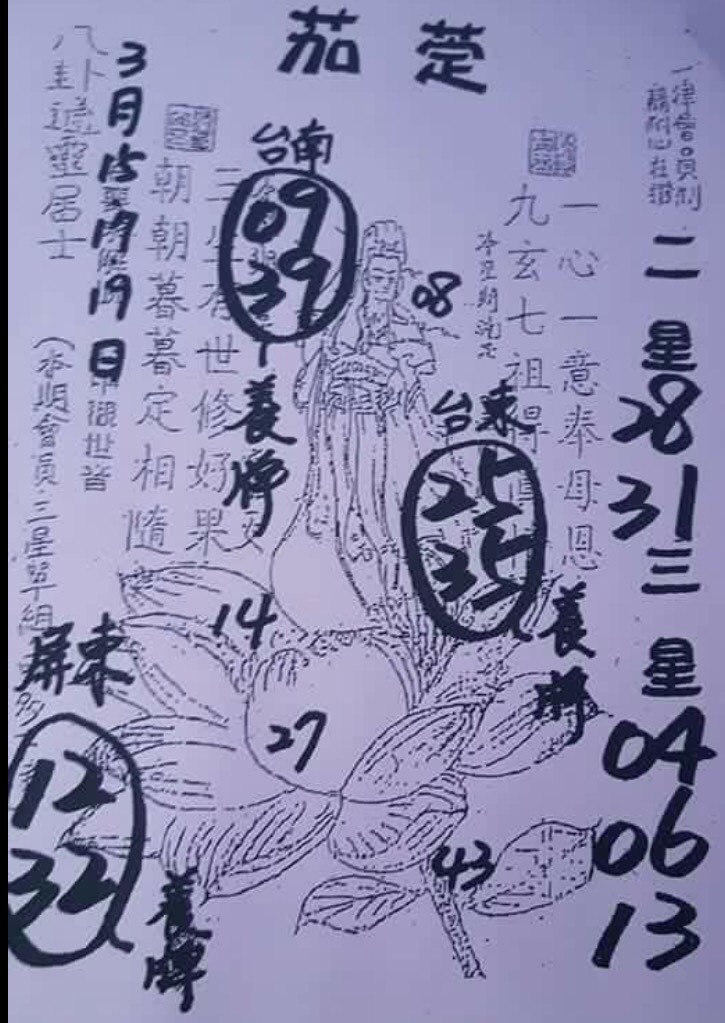 茄萣
3月15 17 19日
八卦
靈居士
(本期會員三星單組
朝朝暮暮定相隨
世修好果
台南
09
39
養牌
08
台東
25
35
養牌
九玄七祖得
一心一意奉母恩
一律會員制
二星
28
31
三星
04
06
13
14
27
43
屏東
12
32
養牌